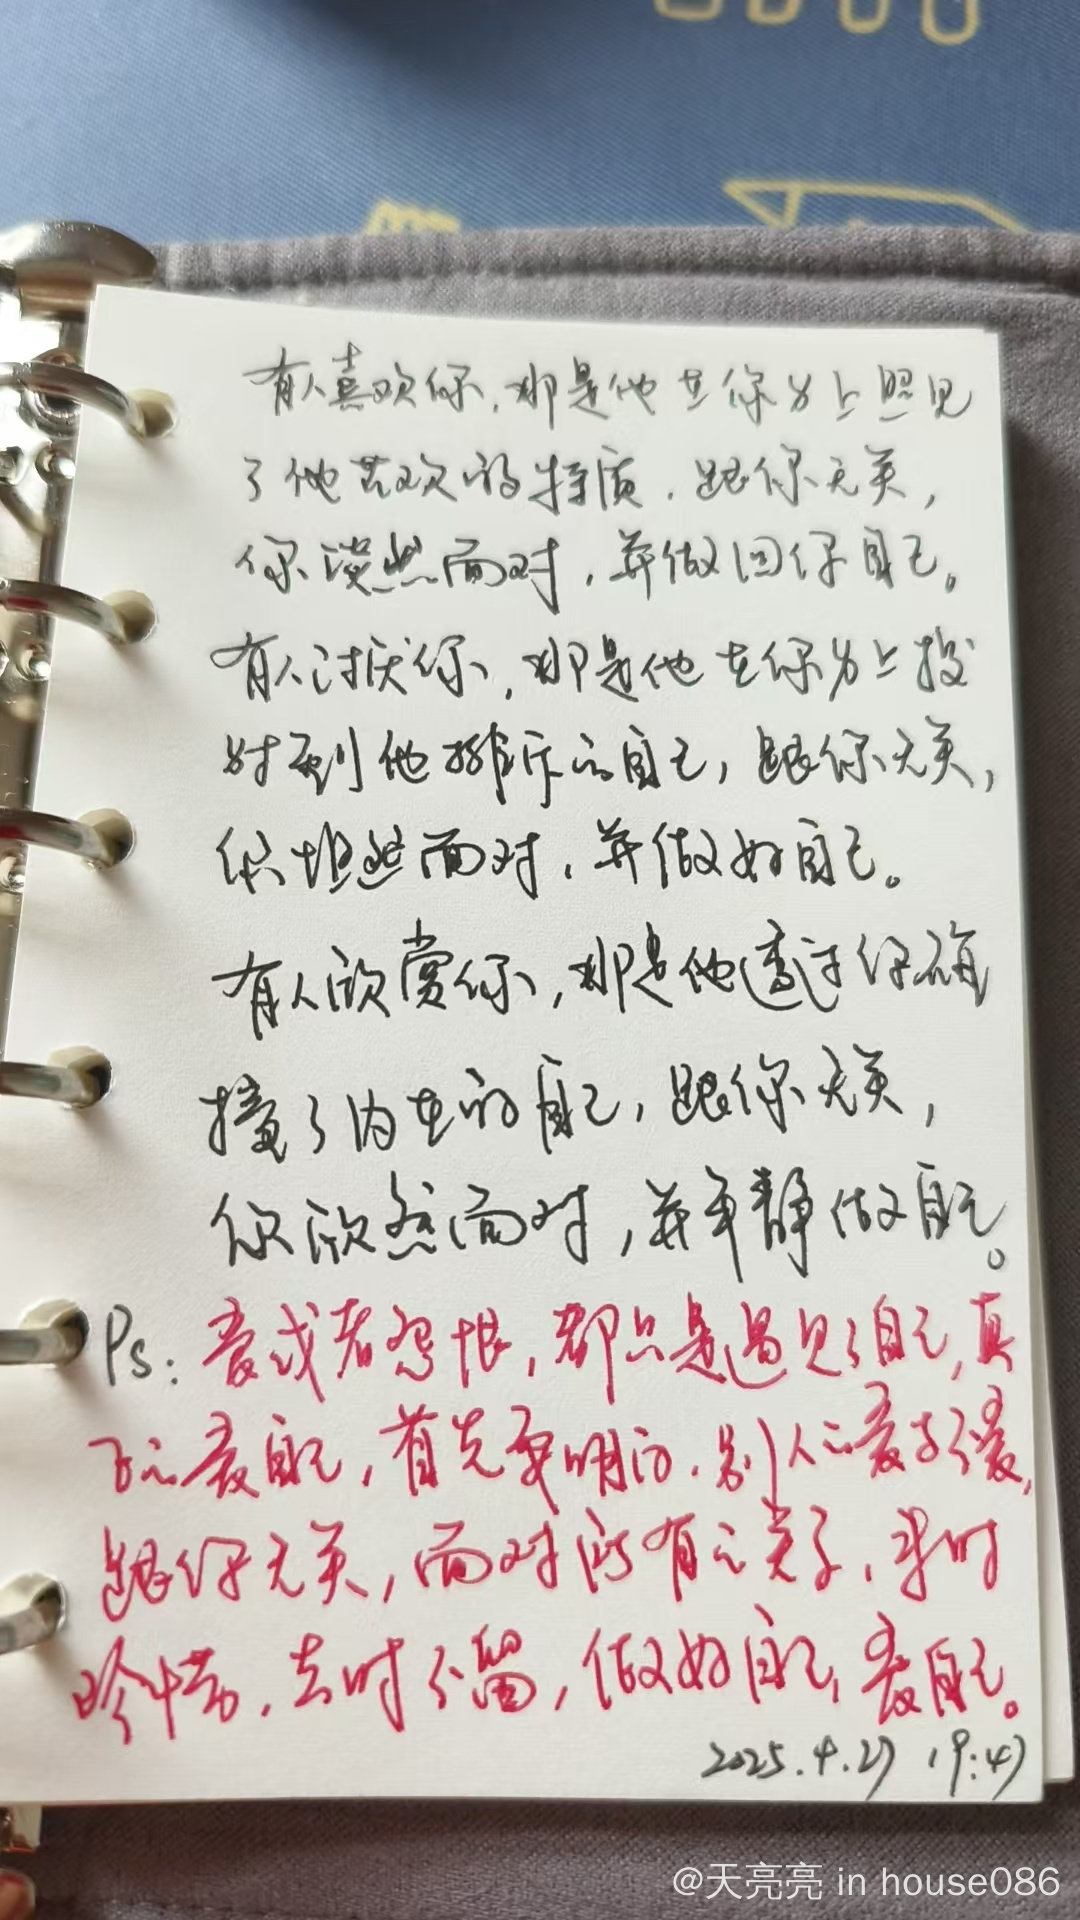 有人喜欢你，那是他在你身上照见
了他喜欢的特质，跟你无关，
你淡然面对，并做回你自己。
有人讨厌你，那是他在你身上投
射到他排斥的自己，跟你无关，
你坦然面对，并做好自己。
有人欣赏你，那是他透过你碰
撞了内在的自己，跟你无关，
你欣然面对，并平静做自己。
Ps：爱或者怨恨，都只是遇见了自己，真
正的爱自己，首先要明白，别人的爱与不爱，
跟你无关，面对所有的关系，来时
珍惜，去时不留，做好自己，爱自己。
2025.4.27 19:47
@天亮亮 in house086